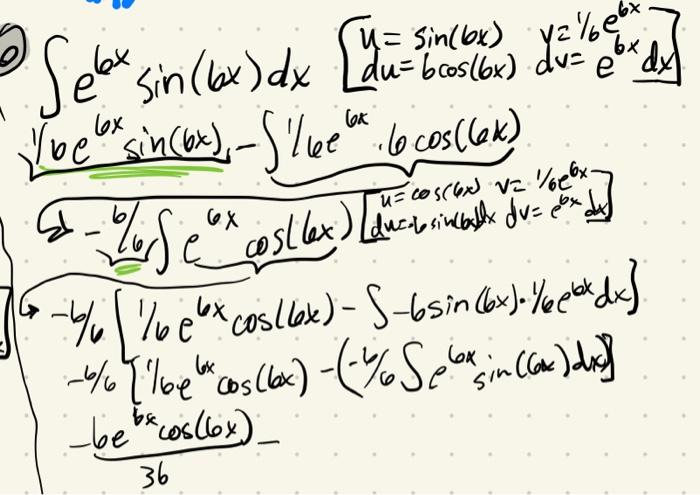 ∫e^{6x} sin(6x)dx [u = sin(6x) v = 1/6 e^{6x}
du = 6cos(6x) dv = e^{6x} dx]
1/6 e^{6x} sin(6x) - ∫1/6 e^{6x} · 6 cos(6x)
↳ - 6/6 ∫ e^{6x} cos(6x)) [u = cos(6x) v = 1/6 e^{6x}
du = -6 sin(6x)dx dv = e^{6x} dx]
↳ -6/6 [1/6 e^{6x} cos(6x) - ∫ -6 sin(6x) · 1/6 e^{6x} dx]
-6/6 [1/6 e^{6x} cos(6x) - (-6/6 ∫ e^{6x} sin(6x) dx)]
-6e^{6x} cos(6x) -
36